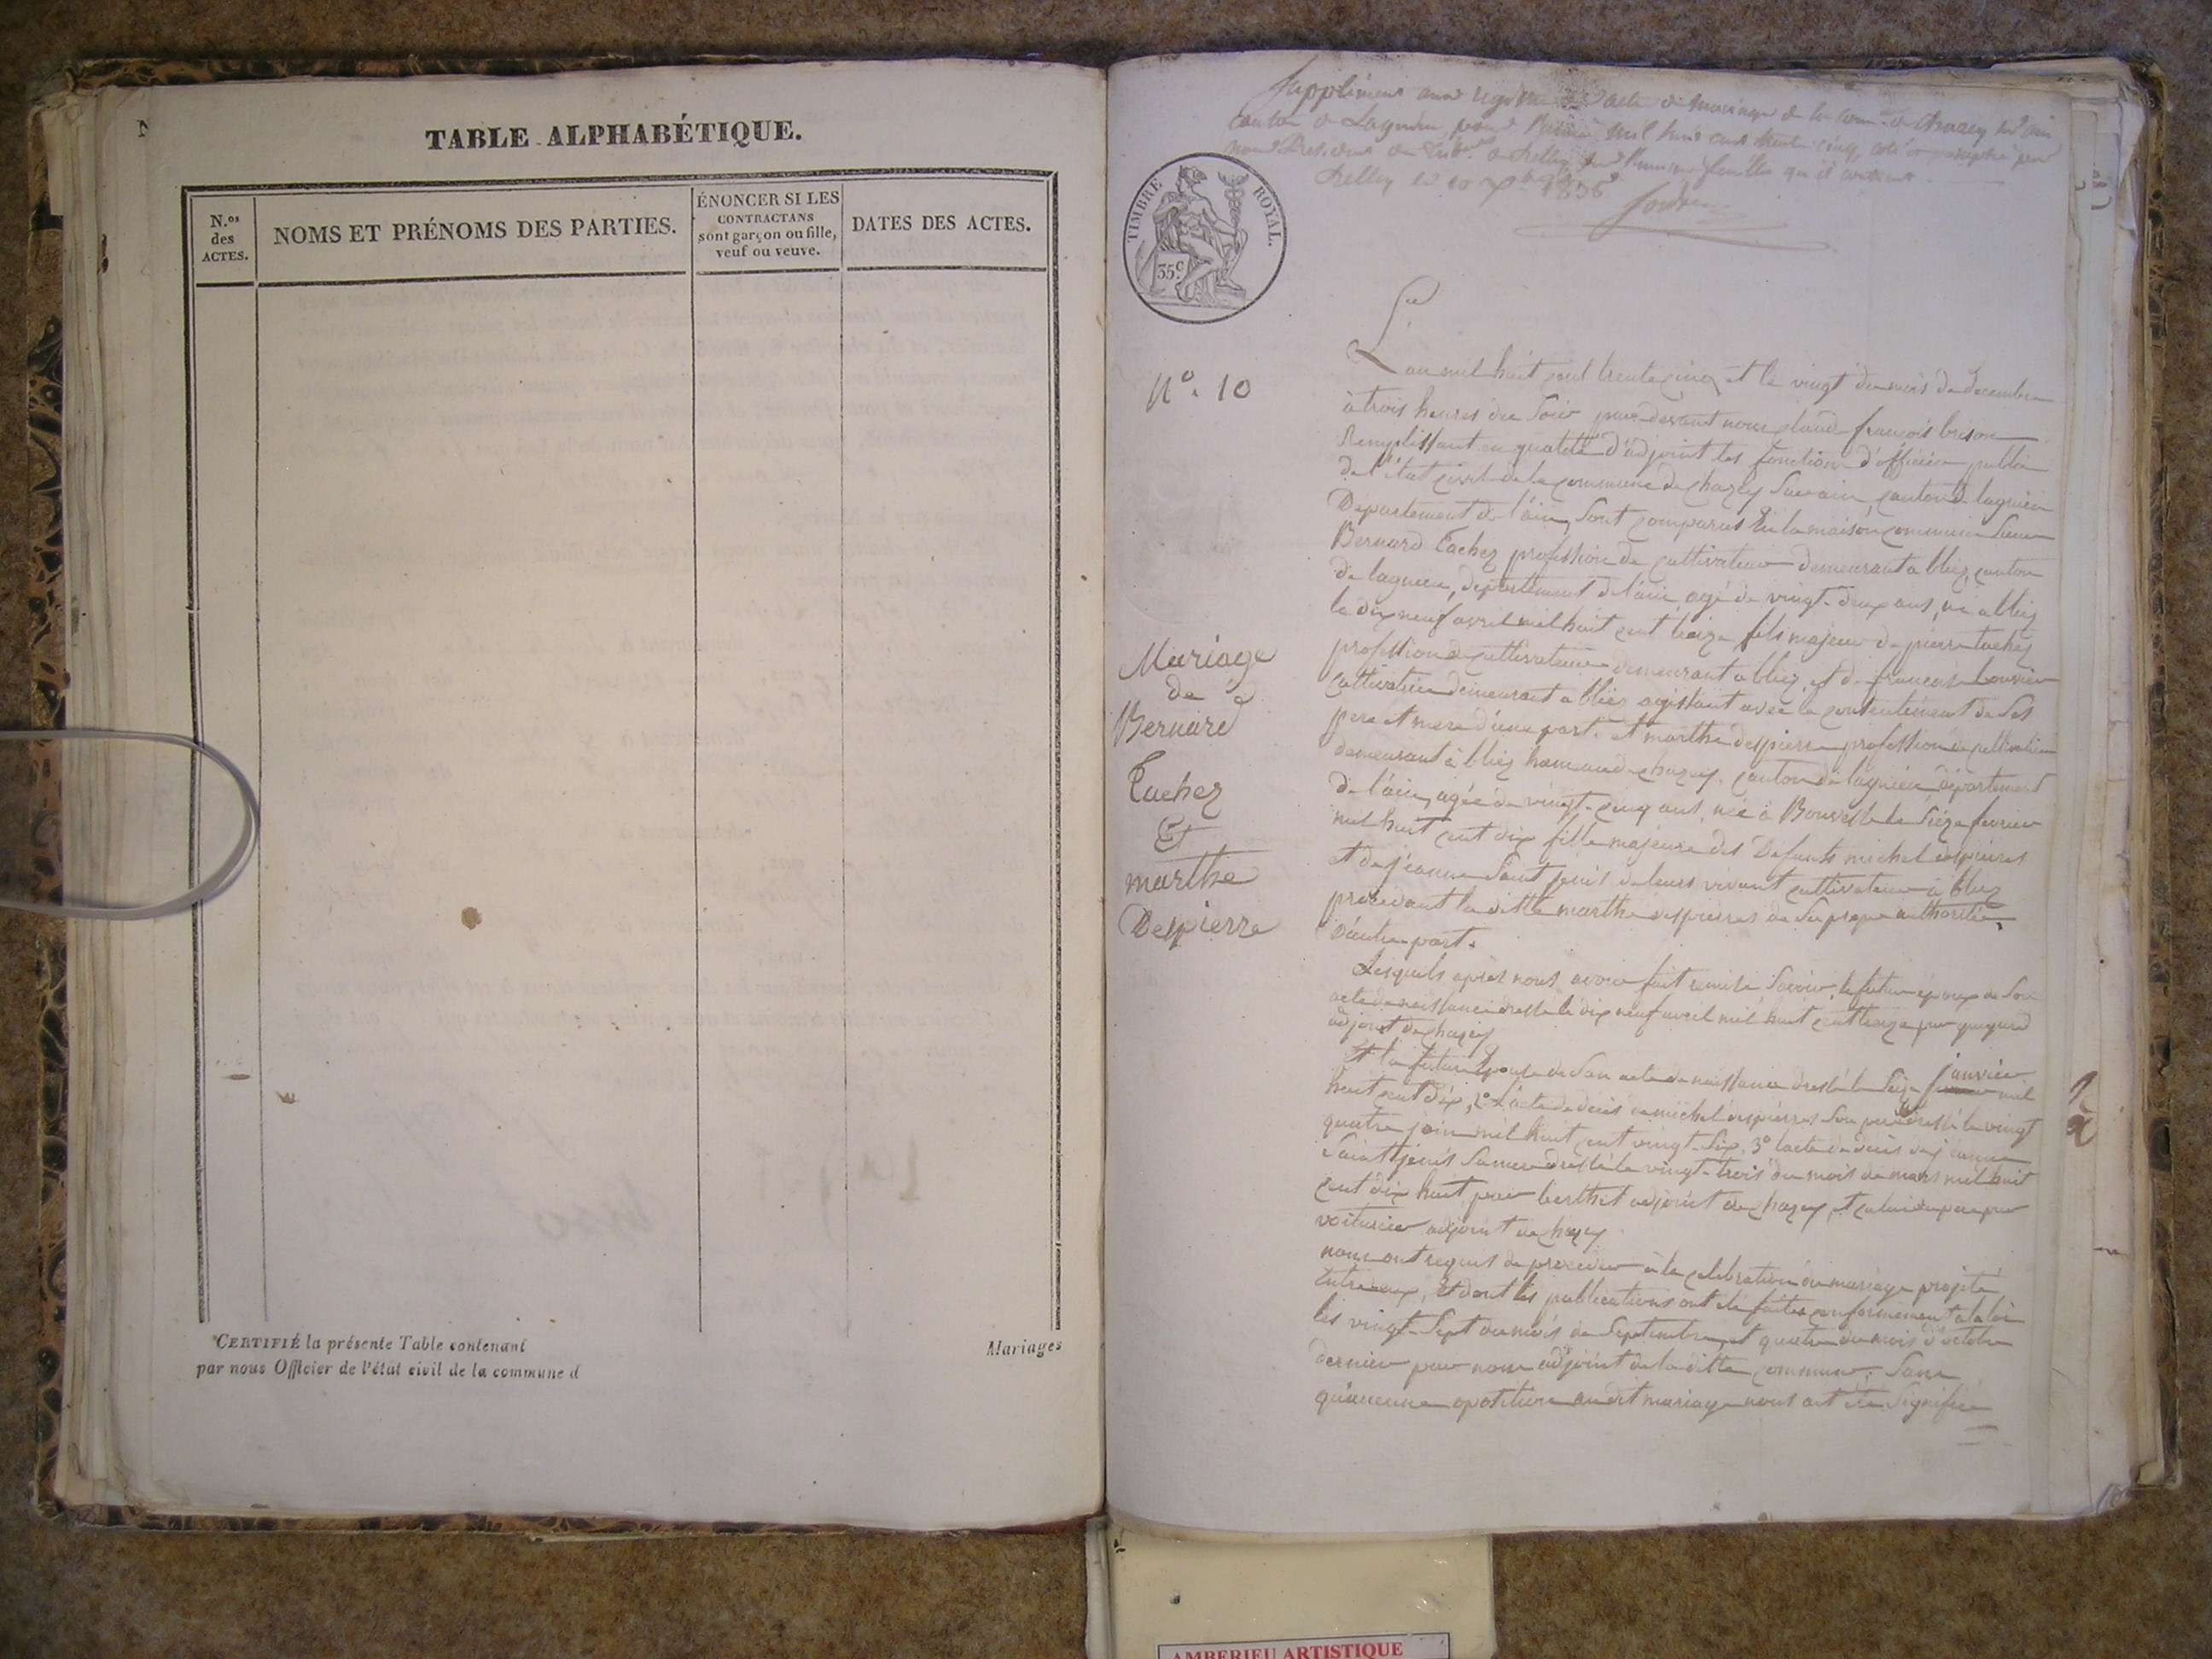 TABLE ALPHABÉTIQUE.
N.os des ACTES.
NOMS ET PRÉNOMS DES PARTIES.
ÉNONCER SI LES CONTRACTANS sont garçon ou fille, veuf ou veuve.
DATES DES ACTES.
CERTIFIÉ la présente Table contenant
Mariages
par nous Officier de l'état civil de la commune d
Supplément aux registre acte de mariage de la
canton de Lagnieu pour mil huit cent trente cinq
TIMBRE ROYAL.
35 c
N°. 10
Mariage
de
Bernard
Tachez
Et
marthe
Despierre
L'an mil huit cent trente cinq et le vingt du mois de decembre
à trois heures du Soir par devant nous claude françois brison
Remplissant en qualité d'adjoint les fonction d'officier public
de l'état civil de la commune de chazey Sur ain canton de lagnieu
Departement de l'ain, Sont comparus En la maison commune Sieur
Bernard Tachez profession de cultivateur demeurant a bliez canton
de lagnieu, departement de l'ain agé de vingt-deux ans, né a bliez
le dix neuf avril mil huit cent treize fils majeur de pierre tachez
profession de cultivateur demeurant a bliez, et de françoise bouvier
cultivatrice demeurant a bliez agissant avec le consentement de Ses
pere et mere d'une part. et marthe despierre profession de cultivatrice
demeurant à bliez hameau de chazey. canton de lagnieu département
de l'ain, agée de vingt-cinq ans, née à le Seize fevrier
mil huit cent dix fille majeure des Defunts michel despierres
et de jeanne Saint jenis de leurs vivant cultivateur à bliez
procedant la ditte marthe despierres de Sa propre authorité,
d'autre part.
Lesquels après nous avoir fait remise Savoir, le futur époux de Son
acte de naissance dressé le dix neuf avril mil huit cent treize par
adjoint de chazey
Et la future Epouse de Son acte de naissance dressé le Seize janvier mil
huit cent dix, 2° l'acte de décès de michel despierres Son pere dressé le vingt
quatre juin mil huit cent vingt-Six, 3° l'acte de décès de jeanne
Saint jenis Sa mere dressé le vingt-trois du mois de mars mil huit
cent dix huit, par berthet adjoint de chazey, et celui du pere par
voiturier adjoint de chazey
nous ont requis de proceder à la celebration du mariage projeté
Entre eux, Et dont les publications ont été faites conformement a la loi
les vingt-Sept du mois de Septembre, et quatre du mois d'octobre
dernier par nous adjoint de la ditte commune, Sans
qu'aucune opposition au dit mariage nous ait été Signifiée
AMBERIEU ARTISTIQUE